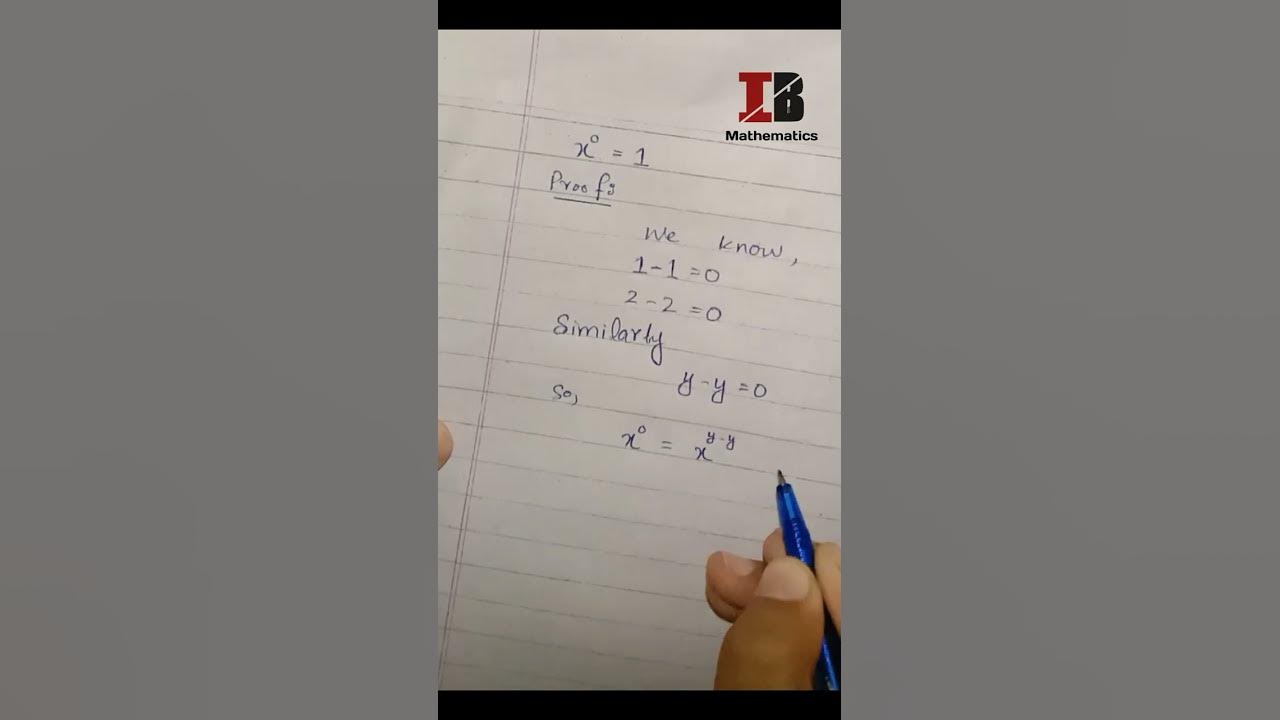 IB
Mathematics
x⁰ = 1
Proof:
We know,
1-1=0
2-2=0
Similarly
y-y=0
So,
x⁰ = x^{y-y}